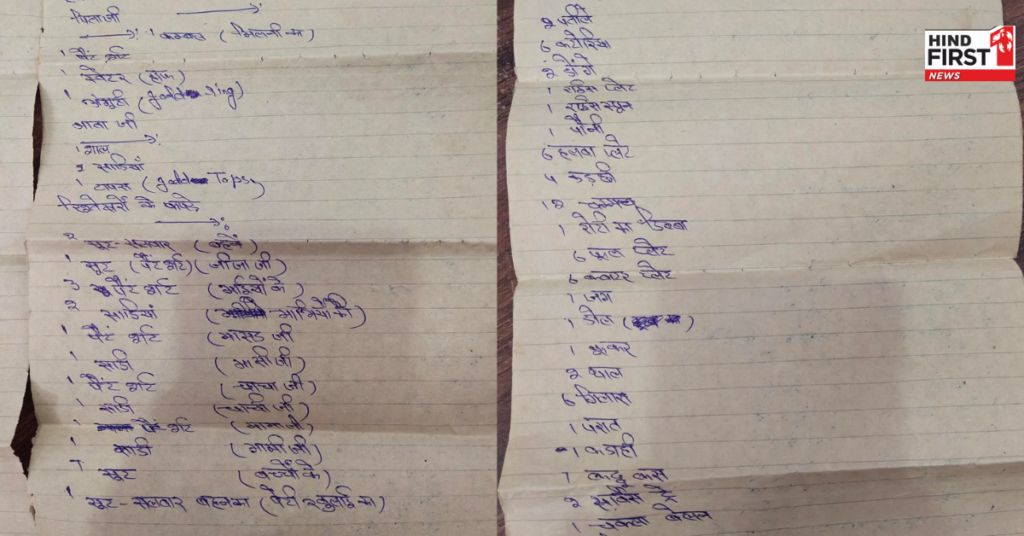 पिताजी
1 कम्बल (मिलनी का)
1 पैंट शर्ट
1 स्वेटर (हाफ)
1 अंगूठी (gold ring)
माता जी
1 शाल
2 साडियाँ
1 टापस (gold Tops)
रिश्तेदारों के वास्ते
2 सूट-सलवार (बहनें)
1 सूट (पैंट शर्ट) (जीजा जी)
3 पैंट शर्ट (भाईयों के)
2 साडियां (भाभियों की)
1 पैंट शर्ट (मासड जी
1 साडी (मासी जी)
1 पैंट शर्ट (चाचा जी)
1 साडी (चाची जी)
1 पैंट शर्ट (मामा जी)
1 साडी (मामी जी)
1 सूट (बच्चों के)
1 सूट-सलवार बहनका (पेटी खुलाई का)
2 पतीले
6 कटोरियां
2 डोंगे
1 राईस प्लेट
1 राईस स्पून
1 पौनी
6 हलवा प्लेट
4 कड़छी
12 चम्मच
1 रोटी का डिब्बा
6 फुल प्लेट
6 क्वाटर प्लेट
1 जग
1 डोल
1 कुकर
2 थाल
6 गिलास
1 परात
1 कडाही
1 कद्दू कस
2 सर्विस ट्रे
1 चकला बेलन
HIND
FIRST
NEWS